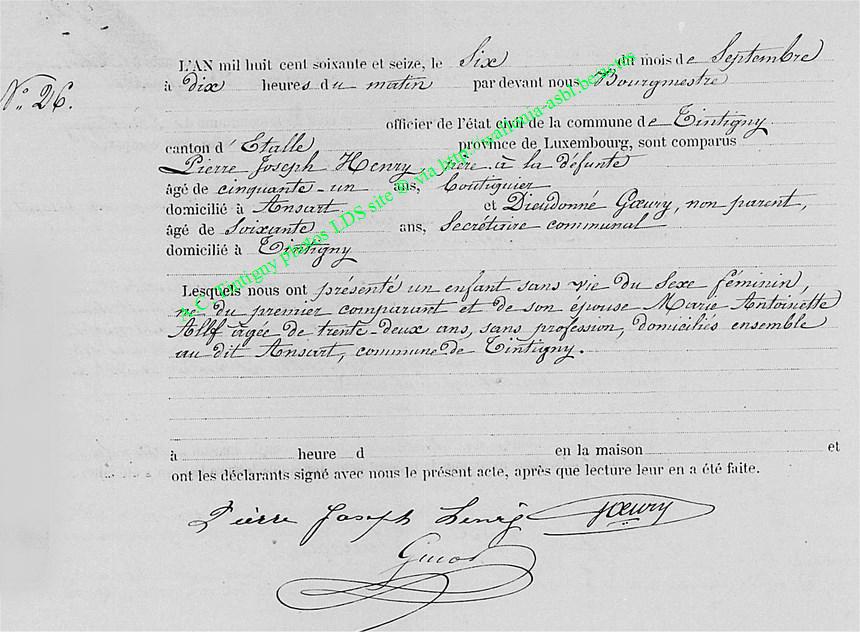 L'AN mil huit cent soixante et seize, le Six du mois de Septembre
N° 26.
à dix heures du matin par devant nous Bourgmestre
officier de l'état civil de la commune de Tintigny
canton d'Etalle province de Luxembourg, sont comparus
Pierre Joseph Henry père à la défunte
âgé de cinquante-un ans, boutiquier
domicilié à Ansart et Dieudonné Gœury, non parent,
âgé de Soixante ans, Secrétaire communal
domicilié à Tintigny
Lesquels nous ont présenté un enfant sans vie du Sexe féminin,
né du premier comparant et de son épouse Marie Antoinette
âgée de trente-deux ans, sans profession, domiciliés ensemble
au dit Ansart, commune de Tintigny.
à heure d en la maison et
ont les déclarants signé avec nous le présent acte, après que lecture leur en a été faite.
Pierre Joseph Henry Gœury
A.C. Tintigny photos LDS site © via